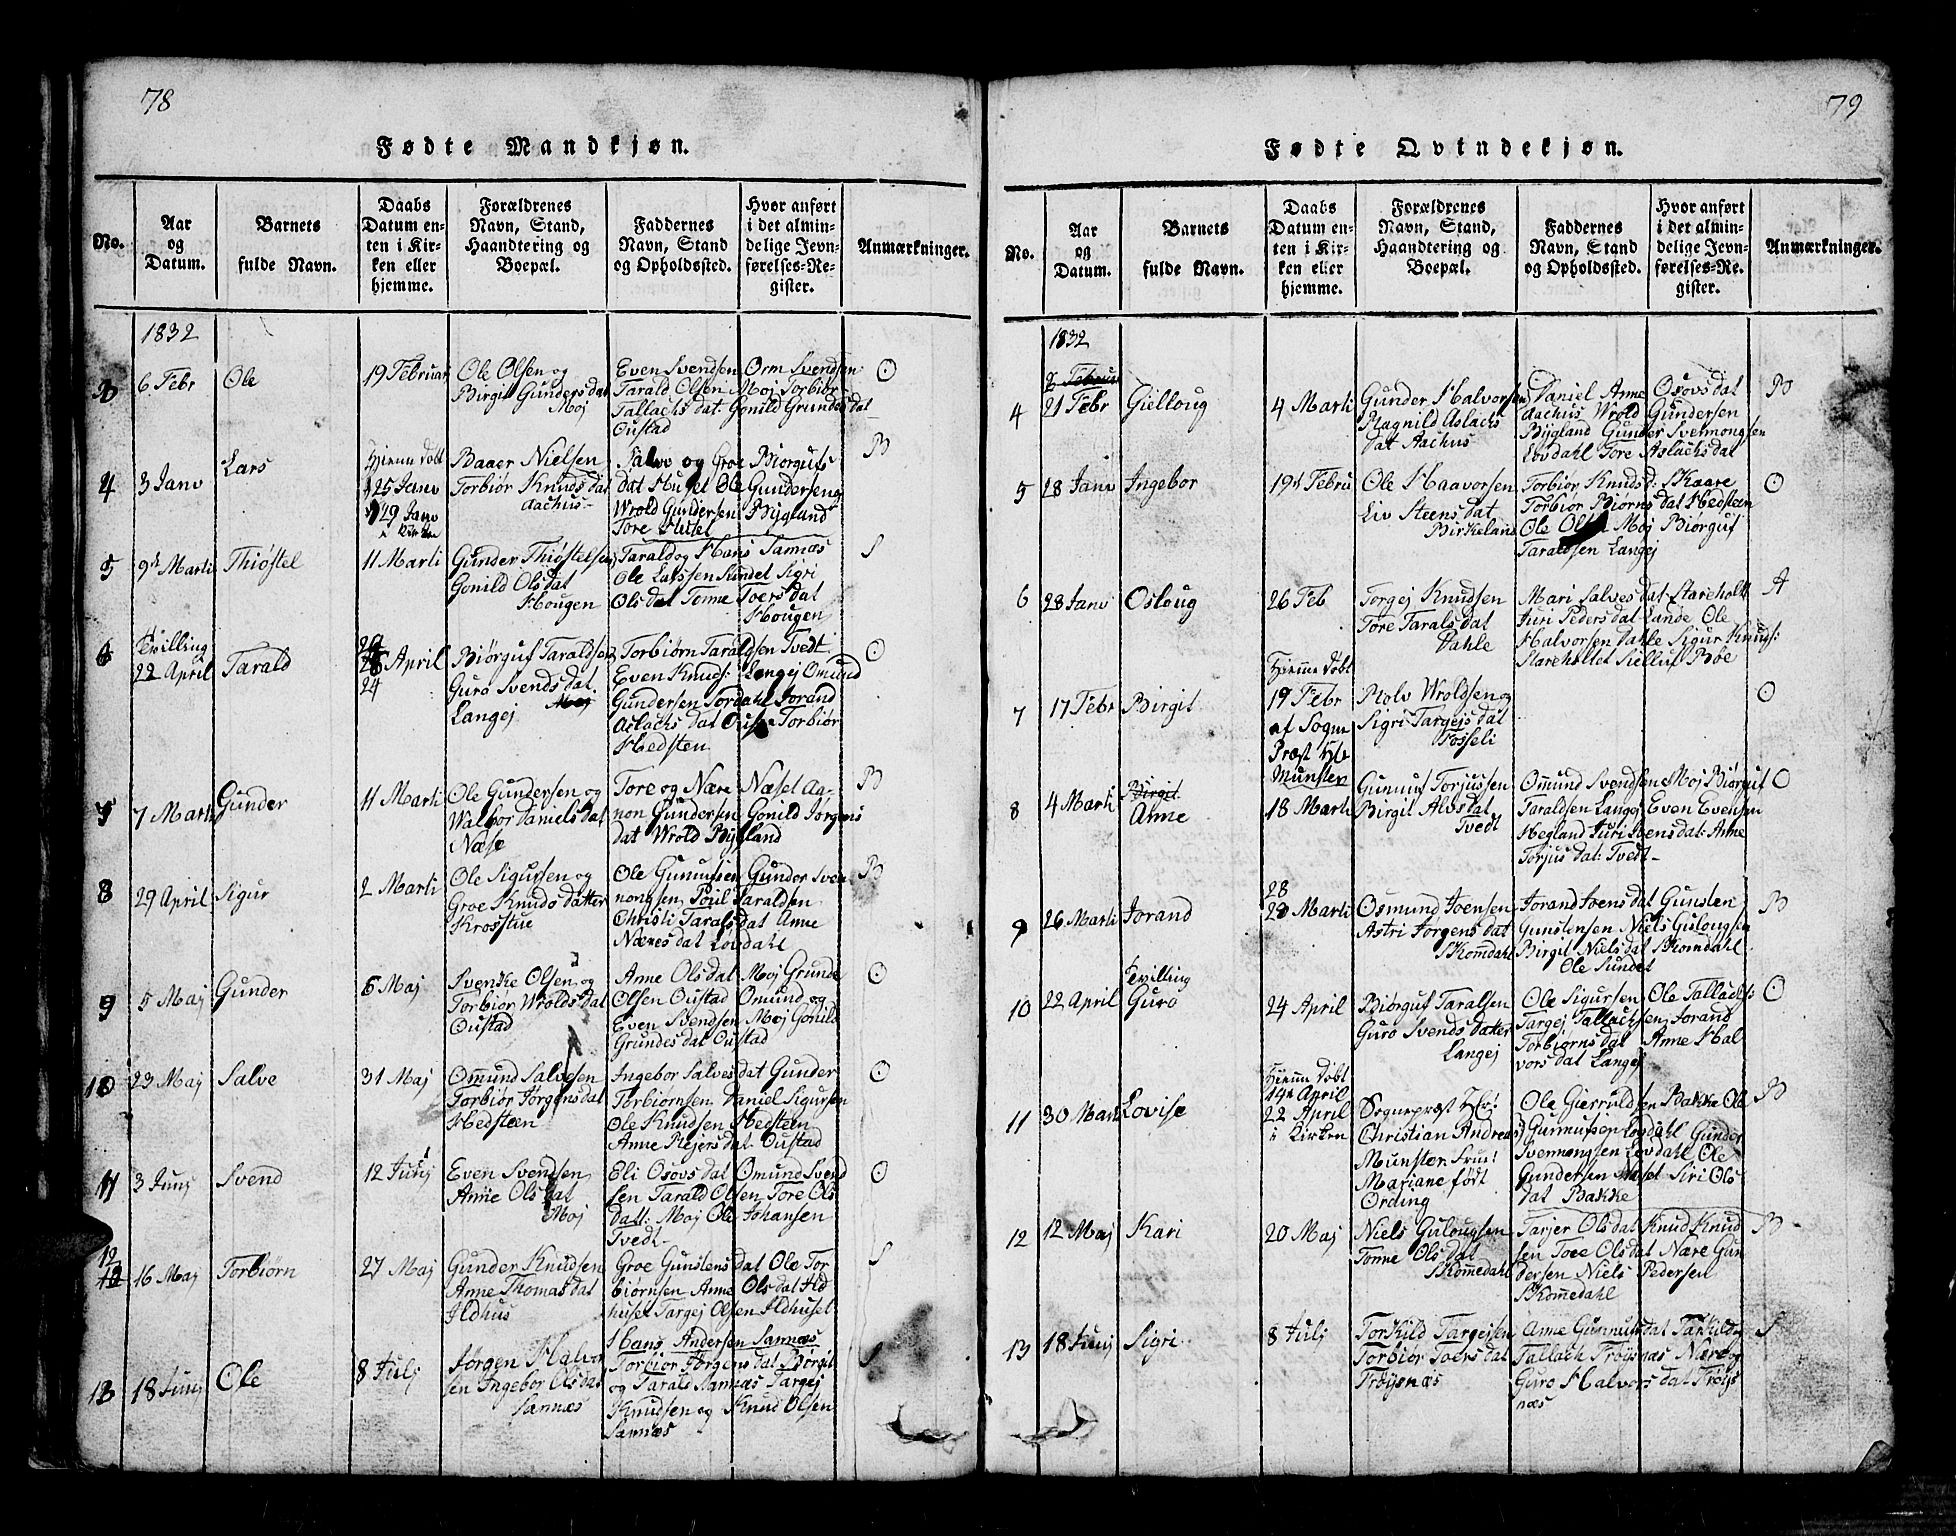 78
Fødte Mandkjøn.
No.
Aar
og
Datum.
Barnets
fulde Navn.
Daabs
Datum en-
ten i Kir-
ken eller
hjemme.
Forældrenes
Navn, Stand,
Haandtering og
Boepæl.
Faddernes
Navn, Stand
og Opholdssted.
Hvor anført
i det almin-
delige Jevn-
førelses-Re-
gister.
Anmærkninger.
1832
3 6 Febr Ole
19 Februar
Ole Olsen og
Birgit Gunders dat
Moj
Even Svendsen Orm Svendsen
Tarald Olsen Moj Torbiør
Tallachs dat. Gonild Grundes dat
Oustad
O
4 3 Janv Lars
Hjemme Døbt
25 Janv
29 Janv
i Kirken
Baaer Nielsen
Torbiør Knuds dat
Aachus
Salve og Groe Biorgufs
dat Huset Ole Gundersen
Wrold Gundersen Bygland
Tore Huset
B
5 9de Marti Thiøstel
11 Marti
Gunder Thiøstelsen
Gonild Ols dat
Hougen
Tarald og Hans Sannæs
Ole Larssen Sundet Sigri
Ols dat Tonne Toers dat
Hougen
S
6 Tvilling
22 April Tarald
28 April
24
Biørguf Taraldsen
Guro Svends dat
Langej Moj
Torbiørn Taraldsen Tvedt
Even Knuds: Langej Omund
Gundersen Tordahl Jorand
Aslachs dat Ouse Torbiør
Hedsten
O
7 7 Marti Gunder
11 Marti
Ole Gundersen og
Walbor Daniels dat
Næse
Tore og Nære Næset Aa-
non Gundersen Gonild Jørgens
dat Wrold Bygland
B
8 29 April Sigur
2 Marti
Ole Sigursen og
Groe Knuds datter
Krosstue
Ole Gunnufsen Gunder Sven
nongsen Poul Taraldsen
Christi Taralsdat Anne
Næres dat Løvdahl
B
9 5 Maj Gunder
6 Maj
Svenke Olsen og
Torbiør Wrolds dat
Oustad
Anne Olsdat Moj Grunde
Olsen Oustad Omund og
Even Svendsen Moj Gonild
Grundes dat Oustad
O
10 23 Maj Salve
31 Maj
Omund Salvesen
Torbiør Jørgens dat
Hedsteen
Ingebor Salves dat Gunder
Torbiornsen Daniel Sigursen
Ole Knudsen Hedsteen
Anne Rejers dat Oustad
O
11 3 Junj Svend
12 Junj
Even Svendsen
Anne Ols dat
Moj
Eli Osovs dat Omund Svend
sen Tarald Olsen Tore Ols
datt: Moj Ole Johansen
Tvedt
O
12
16 Maj Torbiørn
27 Maj
Gunder Knudsen
Anne Thomas dat
Ildhus
Groe Gunstens dat Ole Tor
biørnsen Anne Ols dat Ild
huset Targej Olsen Ildhuset
S
13 18 Junj Ole
8 Julj
Jørgen Halvor
sen Ingebor Olsdat
Sannæs
Hans Andersen Sannæs
Torbiør Jørgens dat Borgit
og Tarald Sannæs Targej
Knudsen og Knud Olsen
Sannæs
S
79
Fødte Qvindekjøn.
No.
Aar
og
Datum.
Barnets
fulde Navn.
Daabs
Datum en-
ten i Kir-
ken eller
hjemme.
Forældrenes
Navn, Stand,
Haandtering og
Boepæl.
Faddernes
Navn, Stand
og Opholdssted.
Hvor anført
i det almin-
delige Jevn-
førelses-Re-
gister.
Anmærkninger.
1832
4 21 Febr Gielloug
4 Marti
Gunder Halvorsen
Ragnild Aslachs
dat Aachus
Daniel Anne Osovs dat
Aachus Wrold Gundersen
Bygland Gunder Svennongsen
Lovdahl Tore Aslachs dat
B
5 28 Janv Ingebor
19de Febru
Ole Haavorsen
Liv Steens dat
Birkeland
Torbiør Knuds d: Skaare
Torbiør Biørns dat Hedsteen
Ole Olsen Moj Biørguf
Taraldsen Langej
O
6 28 Janv Osloug
26 Feb
Torgej Knudsen
Tore Tarals dat
Dahle
Mari Salves dat Stareholt
Juri Peders dat Lande Ole
Halvorsen Dahle Sigur Knuds:
Stareholtet Sielluf Bøe
A
7 17 Febr Birgit
Hjemme Døbt
19 Febr
af Sogne
Præst Hr
Munster
Rolv Wroldsen og
Sigri Targejs dat
Fosseli
O
8 4 Marti Birgit
Anne
18 Marti
Gunuf Torjussen
Birgit Alvs dat
Tvedt
Omund Svendsen Moj Biørguf
Taraldsen Langej Even Evensen
Hegland Juri Ivens dat: Anne
Torjus dat: Tvedt
O
9 26 Marti Jorand
28
28 Marti
Osmund Joensen
Astri Jørgens dat
Skomdahl
Jorand Joens dat Gunsten
Gunstensen Niels Gislougsen
Birgit Niels dat Skomdahl
Ole Sundet
B
10 22 April
Tvilling
Guro
24 April
Biørguf Taralsen
Guro Svends datter
Langej
Ole Sigursen Ole Tallachs:
Targej Tallachsen Jorand
Torbiørns dat Anne Hal
vors dat Langej
O
11 30 Mart Lovise
Hjemme Døbt
14de April
22 April
i Kirken
Sognepræst Hr:
Christian Andreas
Munster Frue:
Mariane født
Ording
Ole Gierruldsen Bakke Ole
Gunnufsen Lovdahl Gunder
Svennongsen Lovdahl Ole
Gundersen Næset Siri Ols
dat Bakke
B
12 12 Maj Kari
20 Maj
Niels Gulougsen
Tonne Ols dat
Skomedahl
Tarjer Olsdat Knud Knud
sen Tore Olsdat Nære Gun
dersen Niels Pedersen
Skomedahl
B
13 18 Junj Sigri
8 Julj
Torkild Targejsen
Torbiør Toers dat
Frøysnæs
Anne Gunnufs dat Tarkild
Tallach Frøysnæs Nære og
Guro Halvors dat Frøys
næs
S